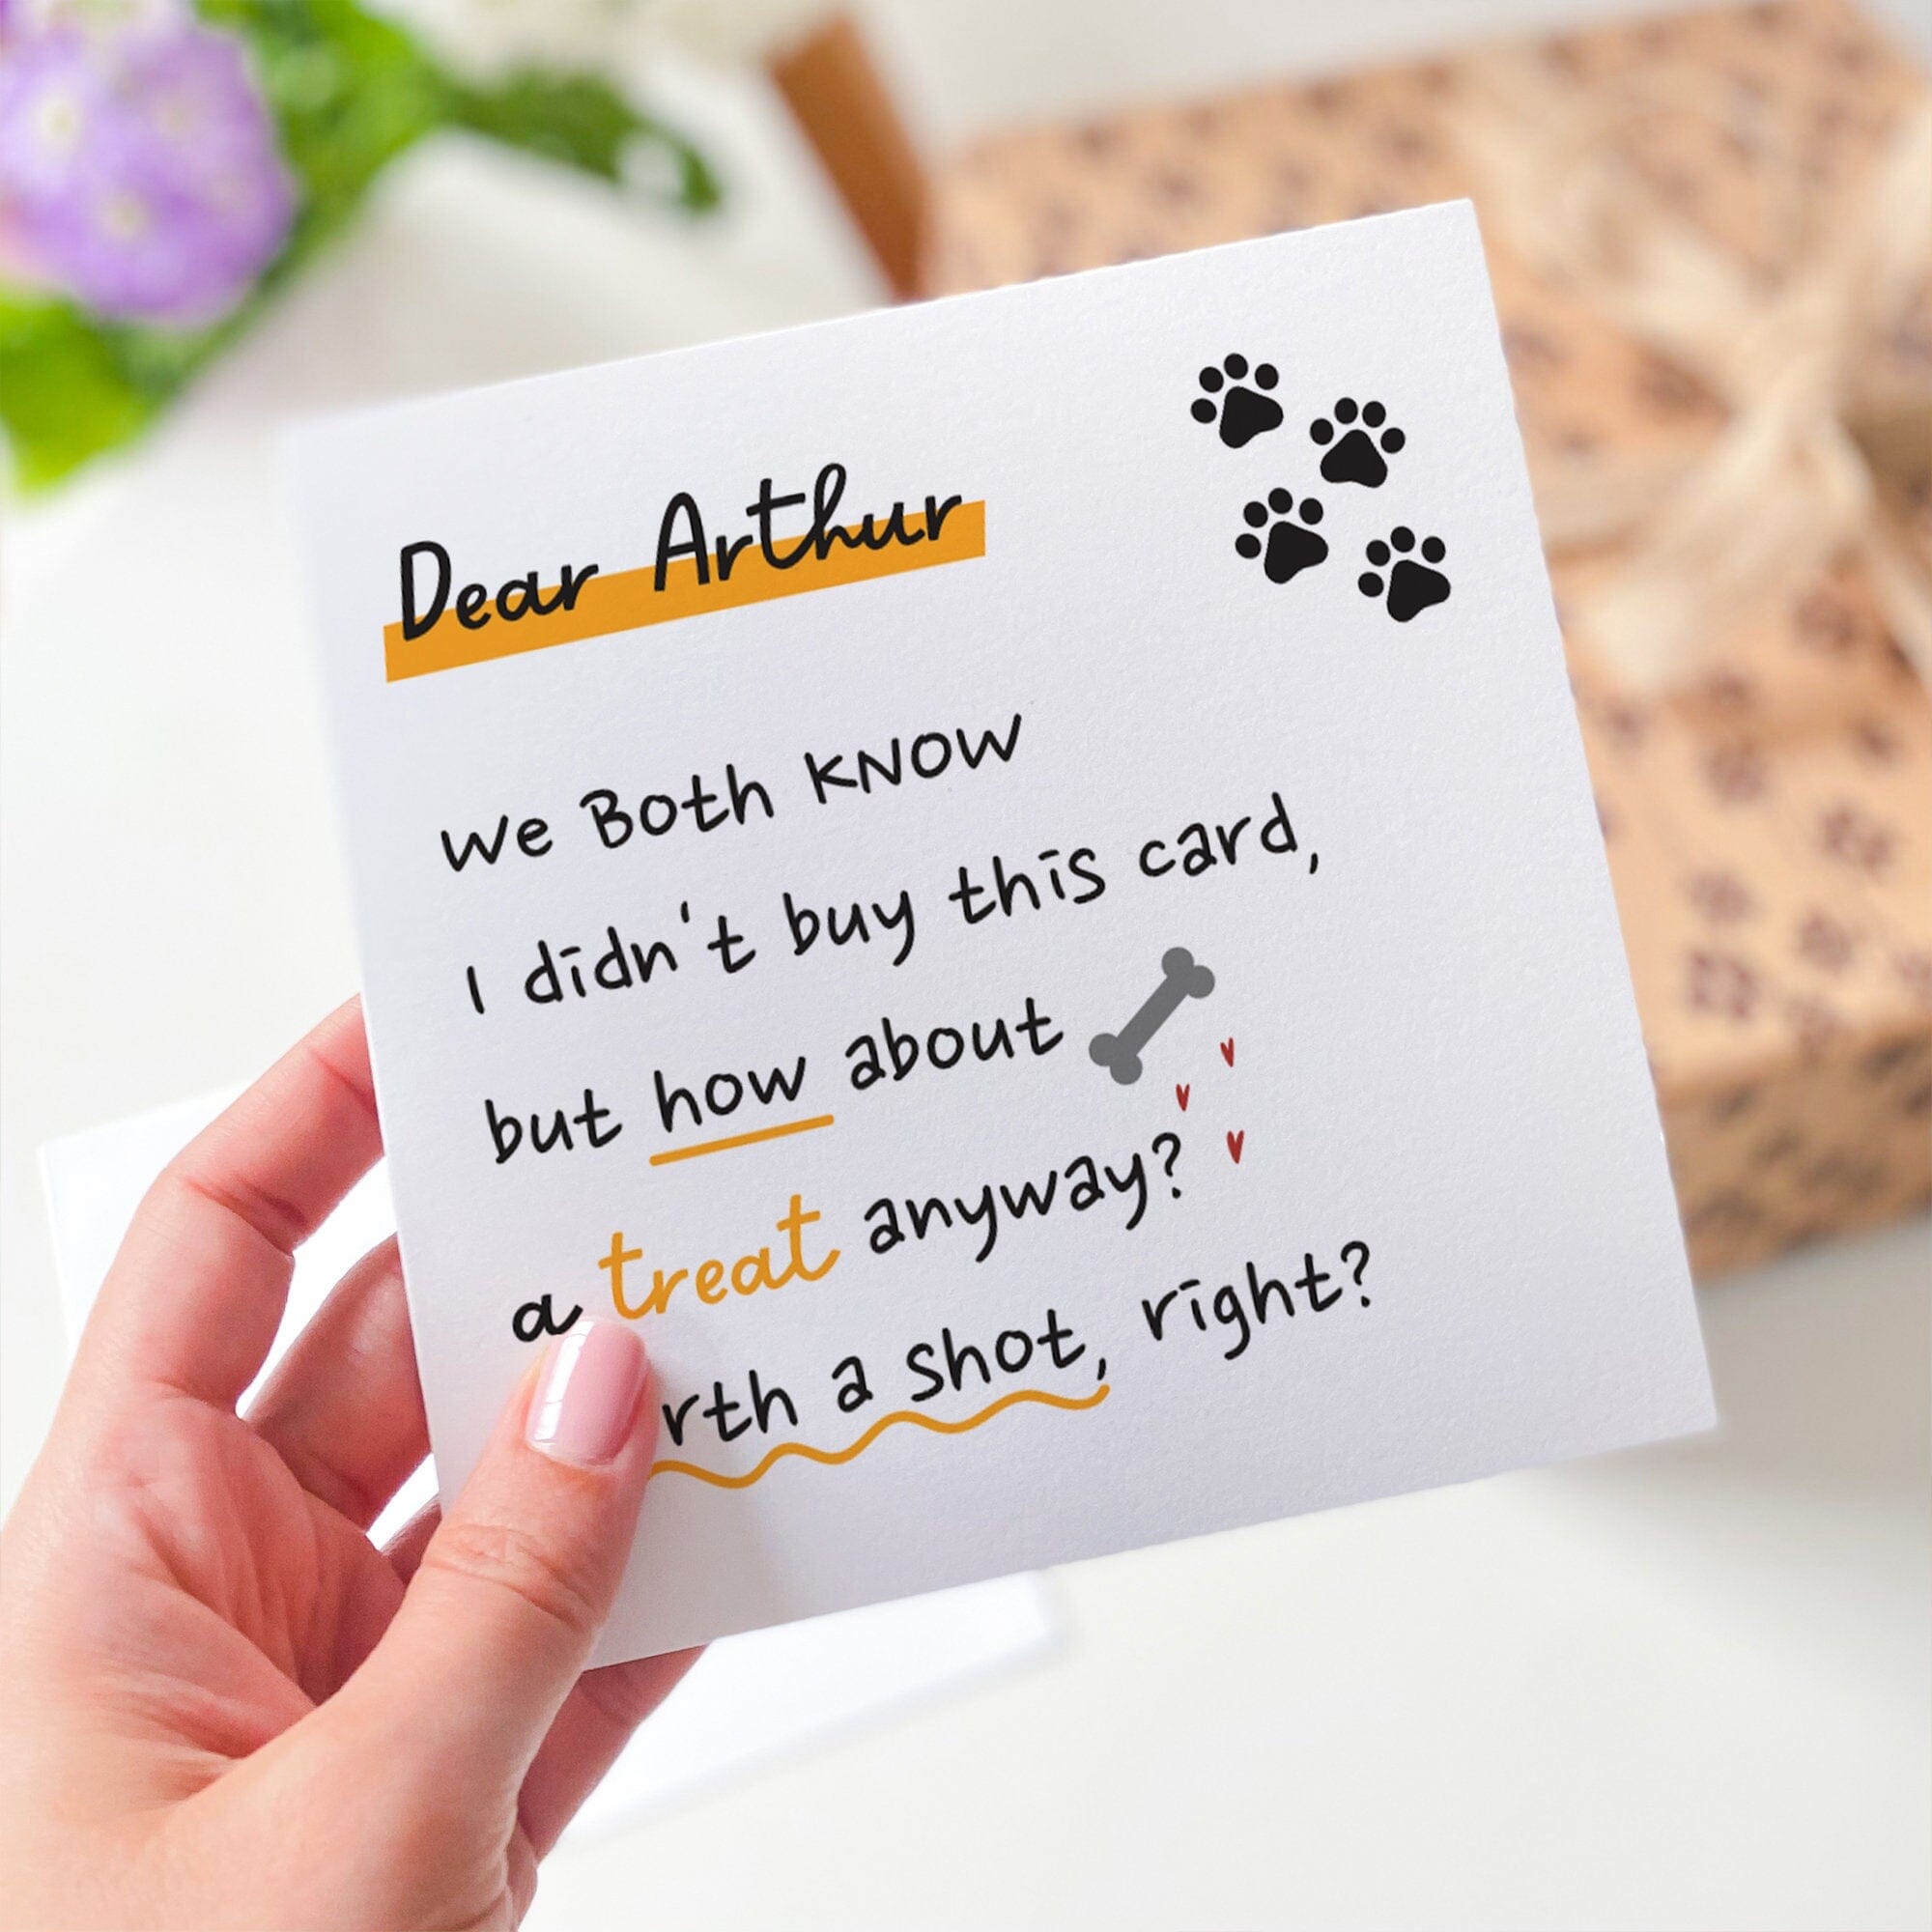 Dear Arthur
We Both KNOW
I didn't buy this card,
but how about
a treat anyway?
a shot, right?